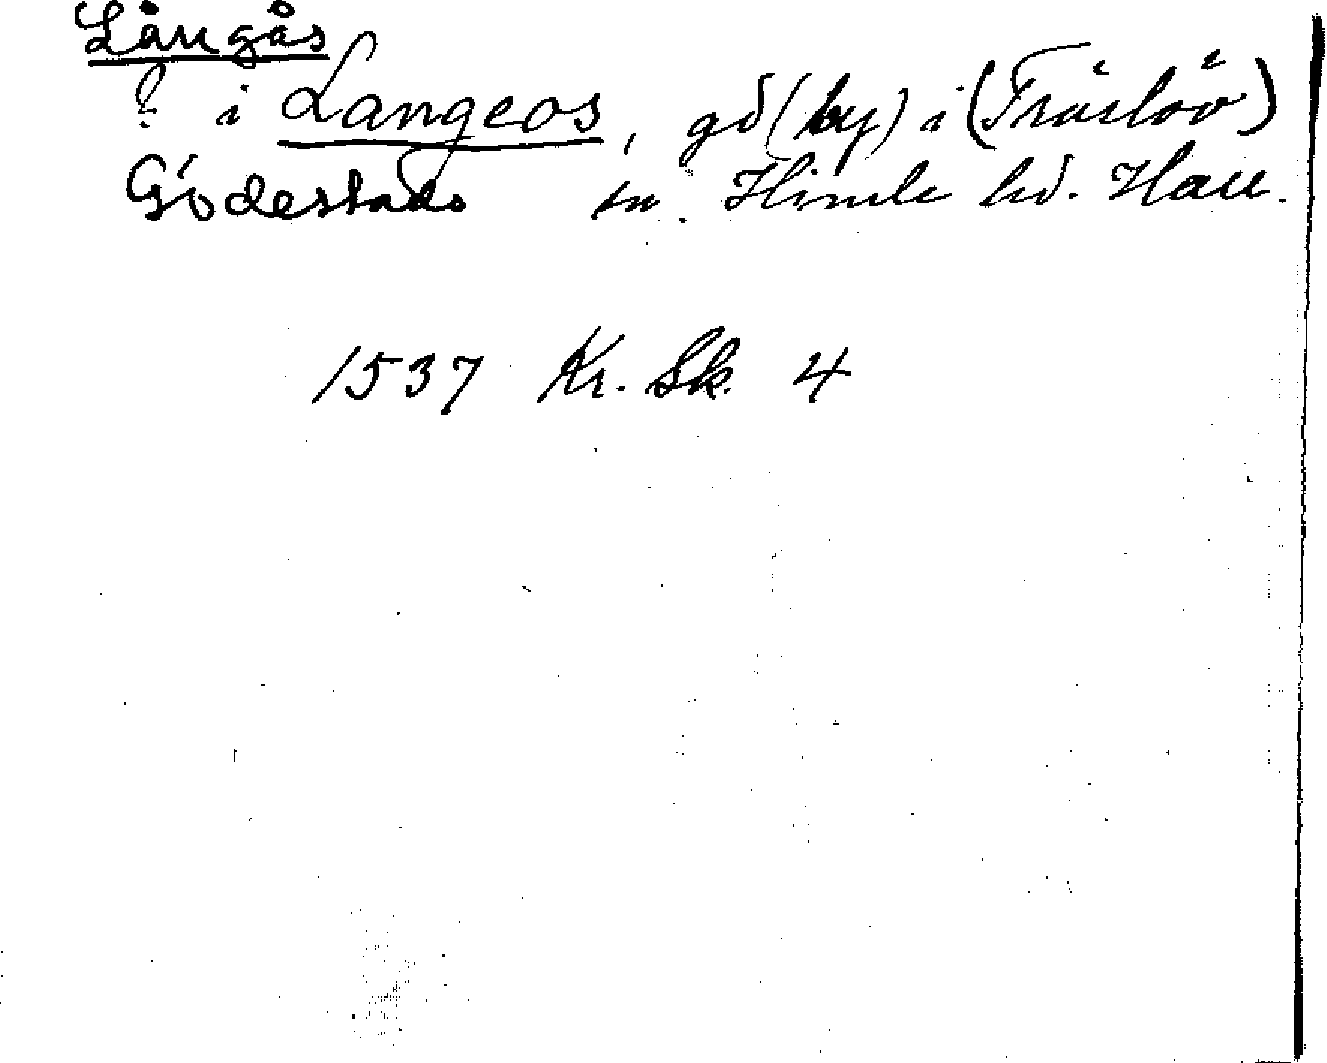 Långås
? i Langeos, gd (by) i (Träslöv)
Gödestads sn. Himle hd. Hall.
1537 Kr. Sk. 4